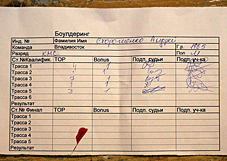 Боулдеринг
Инд. № Фамилия Имя Андрей
Команда Владивосток Г.р. 1985
Разряд КМС Пол
Ст.№Квалифик. TOP Bonus Подп. судьи Подп. уч-ка
Трасса 1 4 1
Трасса 2 1
Трасса 3 3 1
Трасса 4 1
Трасса 5
Результат
Ст № Финал TOP Bonus Подп. судьи Подп. уч-ка
Трасса 1
Трасса 2
Трасса 3
Трасса 4
Трасса 5
Результат